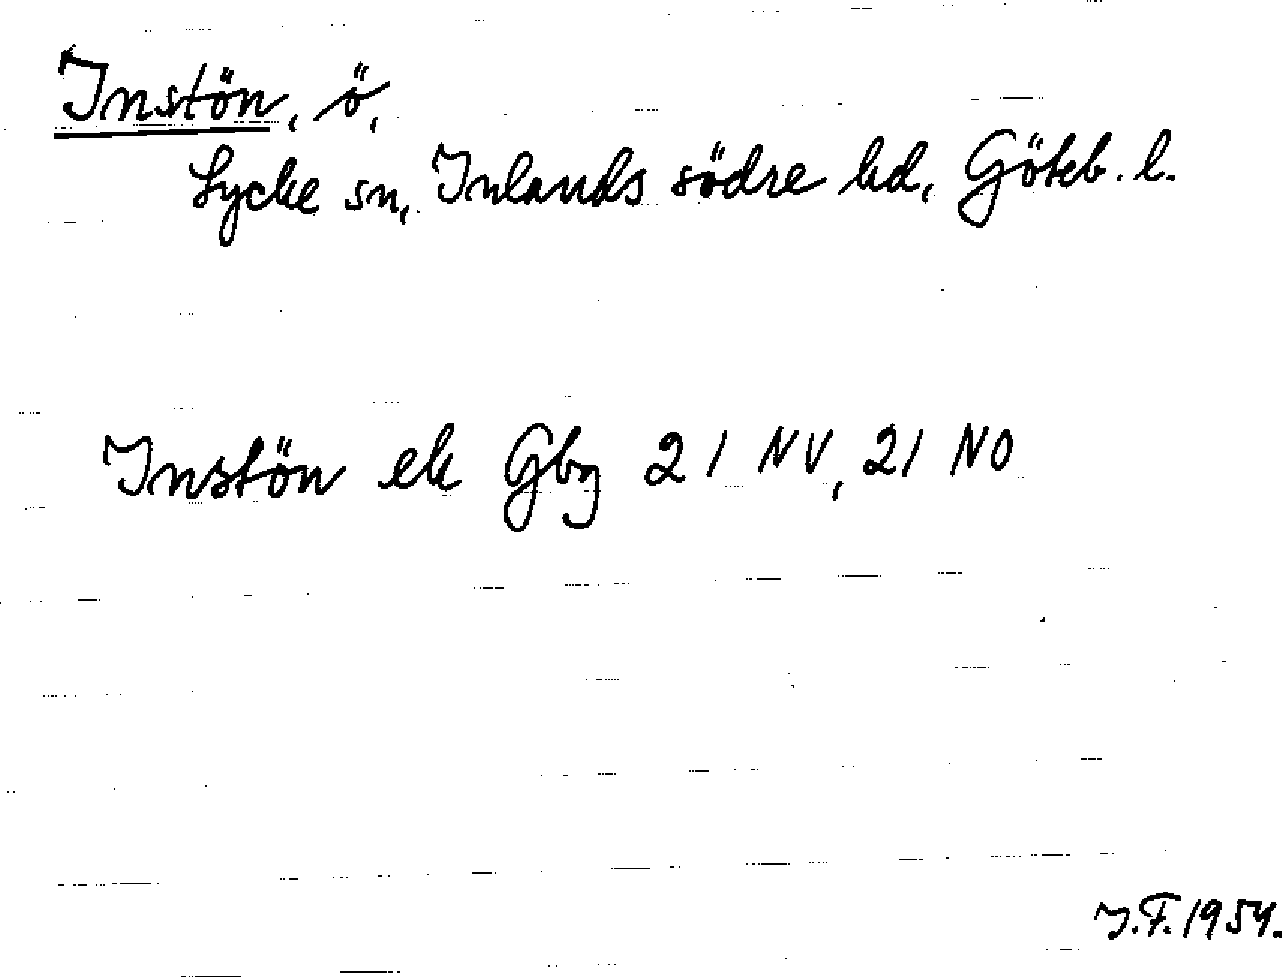 Instön, ö,
Lycke sn, Inlands södre hd, Göteb. l.
Instön ek Gbg 21 NV, 21 NO
J.F. 1954.